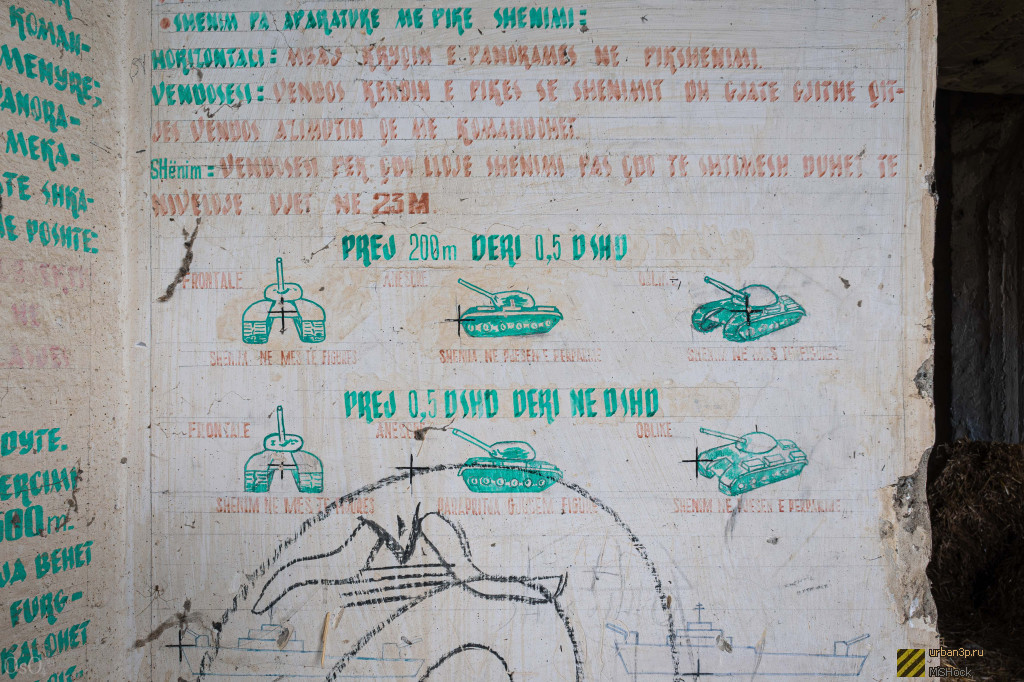 KOMAN-
MENYRE;
PANORA-
MERA-
TE SHKA-
NE POSHTE:
DYTE.
500m.
UA BEHET
FURG-
KALOHET
SHENIM PA APARATURE ME PIKE SHENIMI:
HORIZONTALI: MBAJ KRYQIN E PANORAMES NE PIKSHENIMI.
VENDOSESI: VENDOS KENDIN E PIKES SE SHENIMIT DH GJATE GJITHE QIT-
JES VENDOS AZIMUTIN QE ME KOMANDOHET.
SHënim: VENDOSESI PER ÇDO LLOJE SHENIMI PAS ÇDO TE SHTIMESH DUHET TE
NIVELOJE VJET NE 23 M
PREJ 200m DERI 0,5 DSHD
FRONTALE ANESORE
SHENIM NE MES TE FIGURES SHENIM NE PJESEN E PERPARME SHENIM NE MES TE FIGURES
PREJ 0,5 DSHD DERI NE DSHD
FRONTALE ANESORE OBLIKE
SHENIM NE MES TE FIGURES PARAPRITJA GJYSEM FIGURE SHENIM NE PJESEN E PERPARME
urban3p.ru
MShock